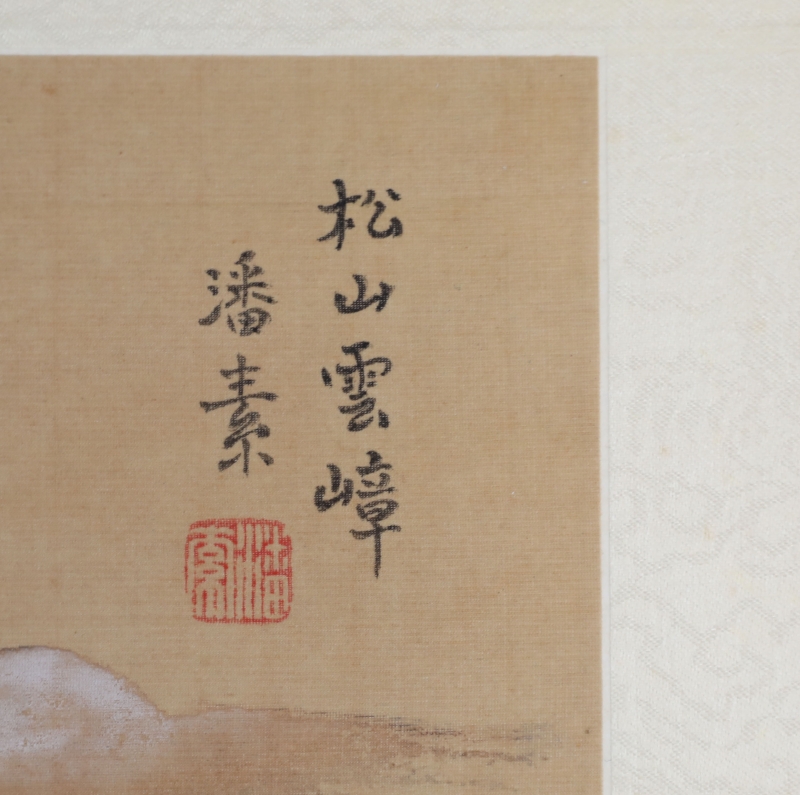 松山雲嶂
潘素
潘素